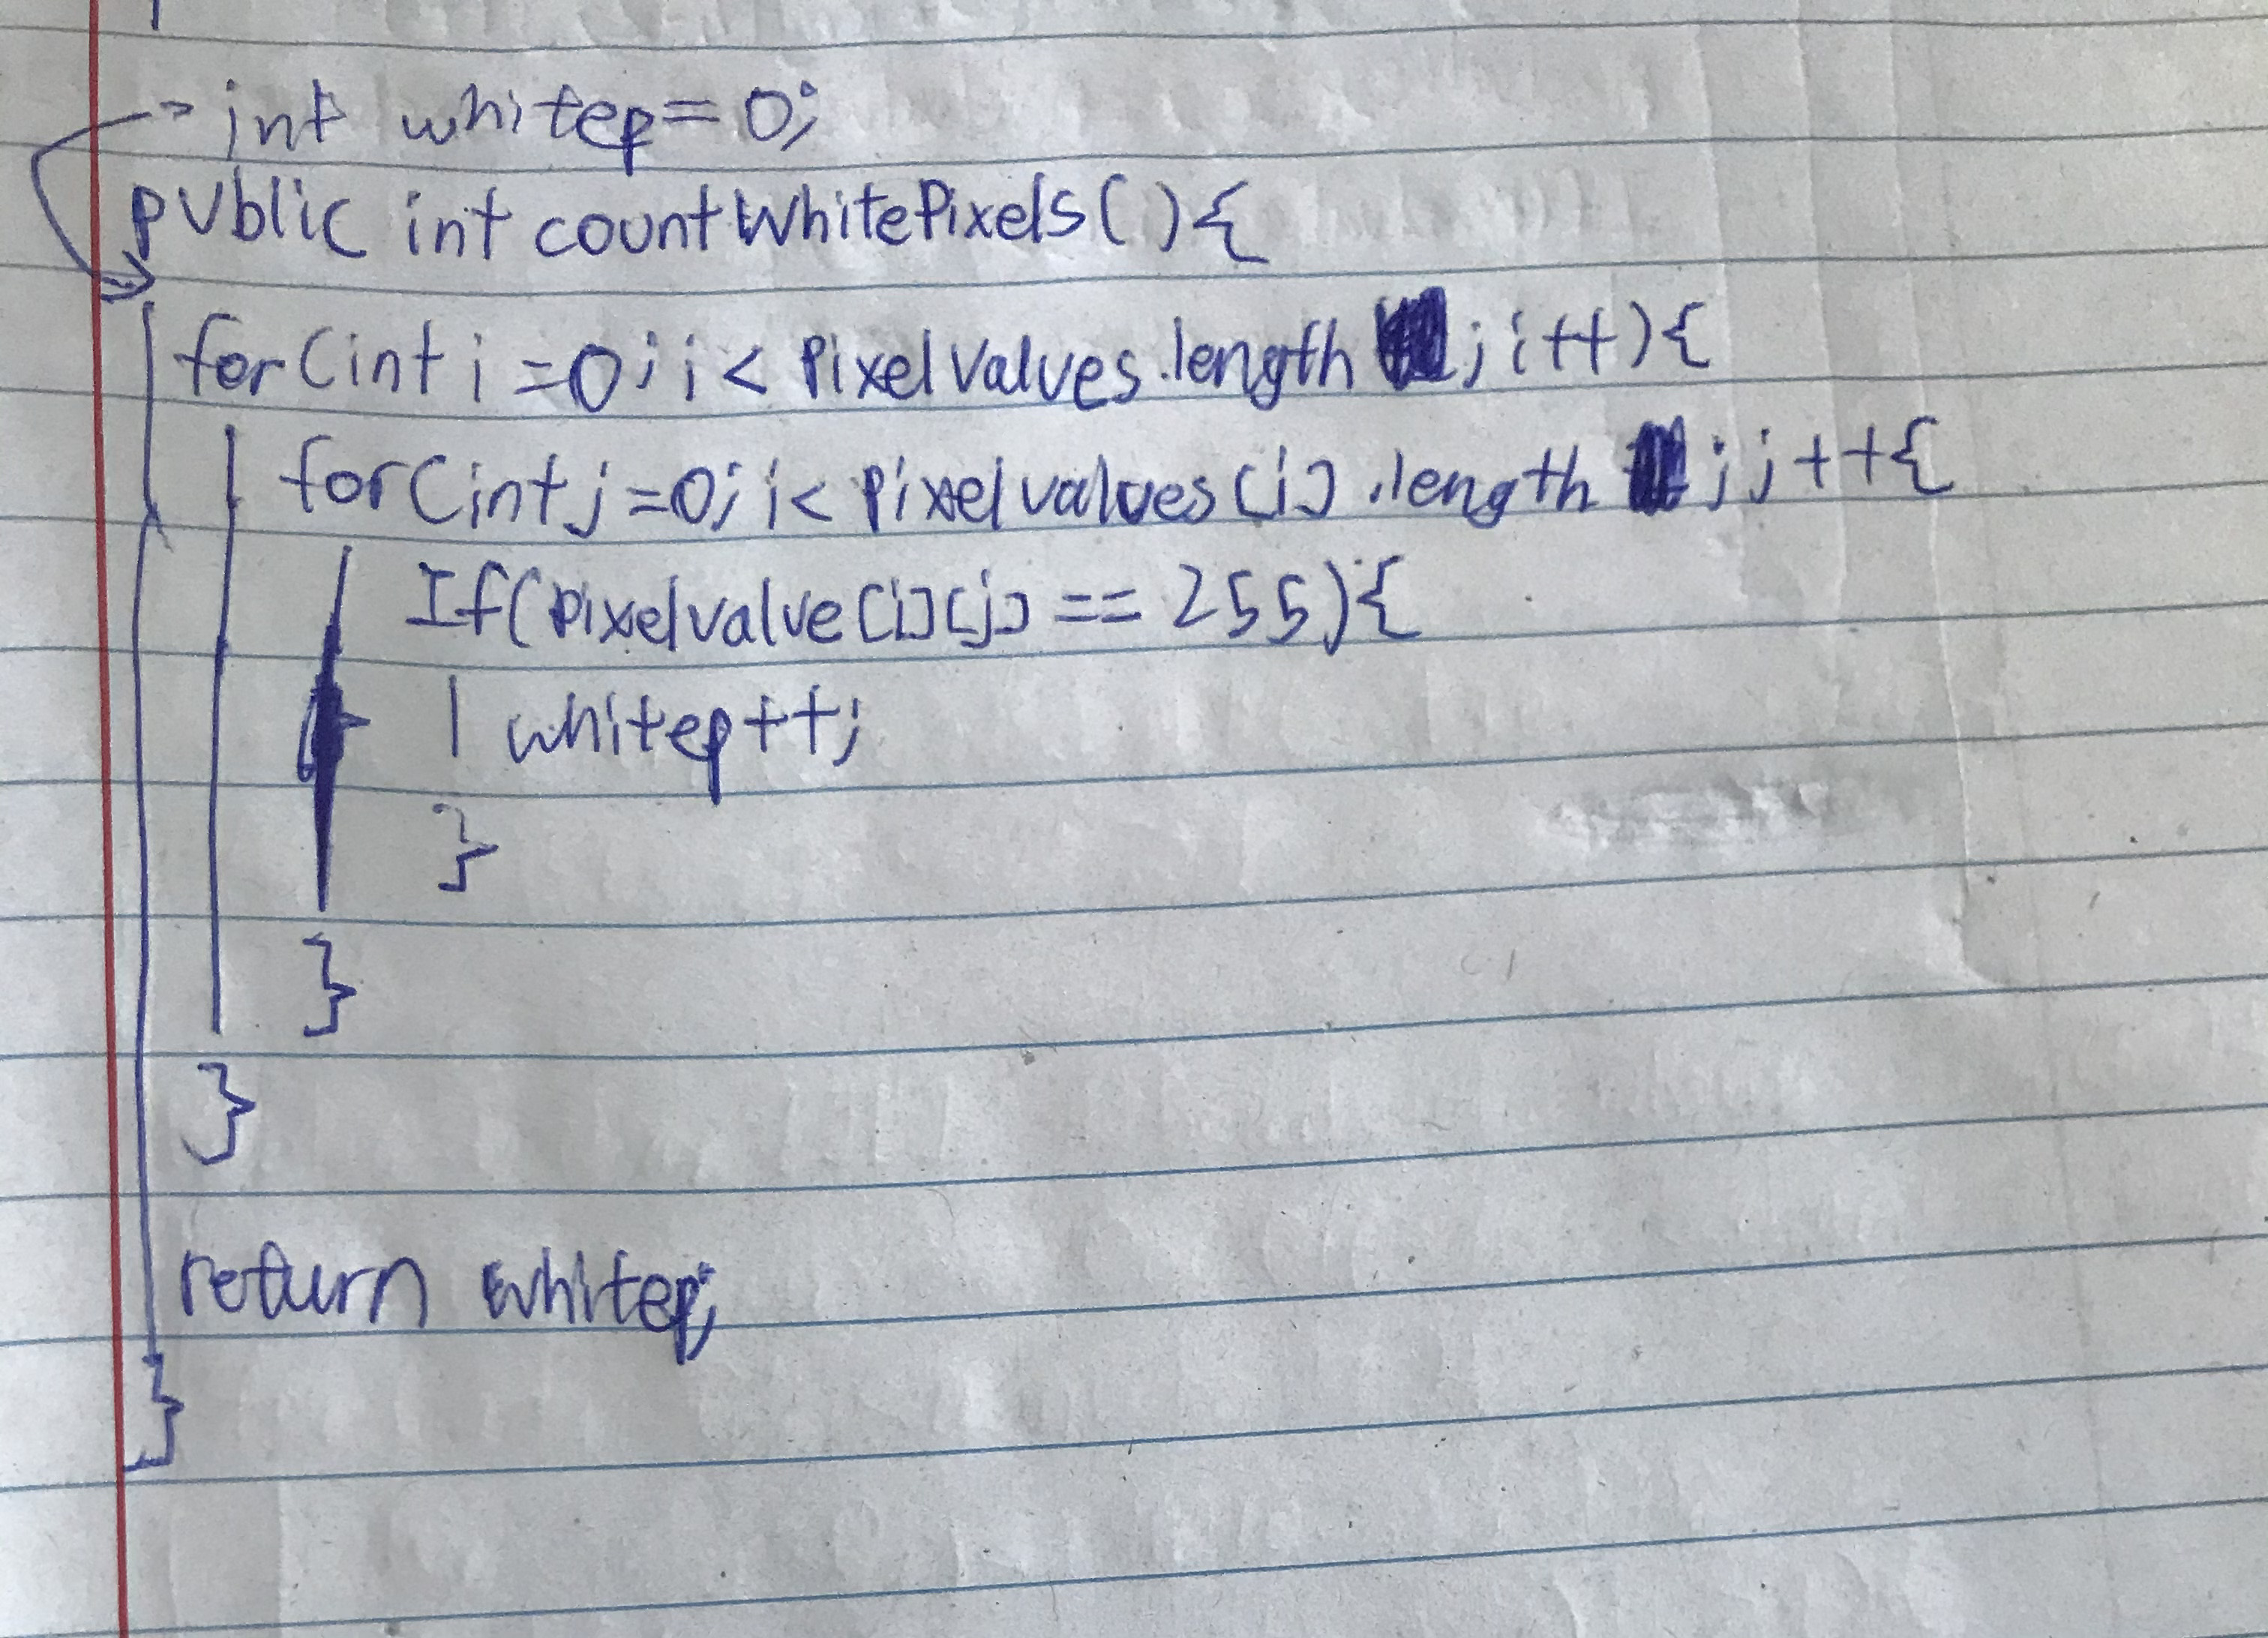 int whitep = 0;
public int countWhitePixels(){
for(int i=0; i < PixelValues.length ; i++){
for(int j=0; i< Pixelvalues[i].length ; j++{
If(Pixelvalue[i][j] == 255){
whitep++;
}
}
}
return whitep;
}